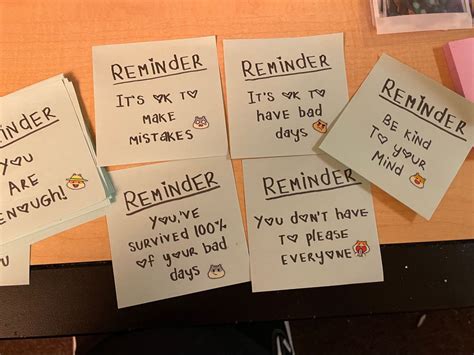 REMINDER
IT'S OK TO
MAKE
MISTAKES
REMINDER
IT'S OK TO
HAVE BAD
DAYS
REMINDER
BE KIND
TO YOUR
MIND
REMINDER
YOU
ARE
ENOUGH!
REMINDER
YOU'VE
SURVIVED 100%
OF YOUR BAD
DAYS
REMINDER
YOU DON'T HAVE
TO PLEASE
EVERYONE